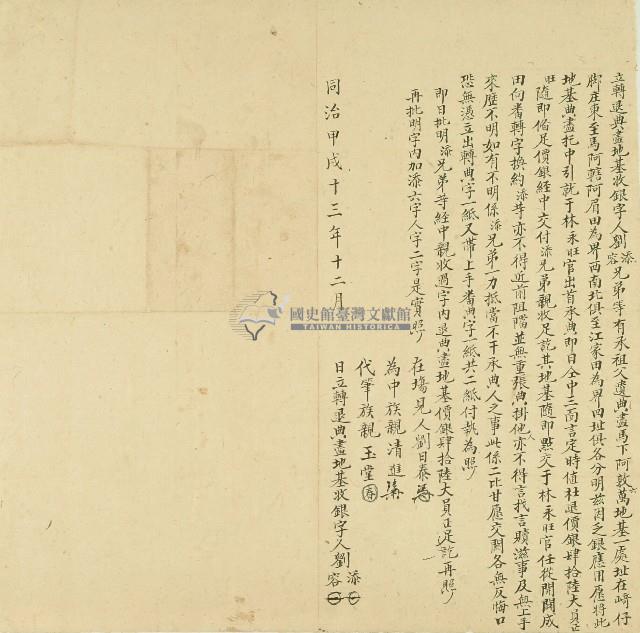 立轉退典盡地基收銀字人劉添容兄弟等有承祖父遺典盡馬下阿敦萬地基一處址在崎仔
脚庄東至馬阿轄阿眉田為界西南北俱至江家田為界四址俱各分明茲因乏銀應用愿將此
地基典盡托中引就于林永旺官出首承典即日仝中三面言定時值社退價銀肆拾陸大員正
旺隨即備足價銀經中交付添兄弟親收足訖其地基隨即點交于林永旺官任從開闢成
田向耆轉字換約添等亦不得近前阻擋並無重張典掛他人亦不得言找言贖滋事及無上手
來歷不明如有不明係添兄弟一力抵當不干承典人之事此係二比甘愿交關各無反悔口
恐無憑立出轉典字一紙又帶上手耆典字一紙共二紙付執為照
即日批明添兄弟等經中親收過字內退典盡地基價銀肆拾陸大員正足訖再照
再批明字內加添六字人字二字是實照
在塲見人劉日泰
為中族親清進
代筆族親玉堂
同治甲戌十三年十二月 日立轉退典盡地基收銀字人劉添容
國史館臺灣文獻館
TAIWAN HISTORICA